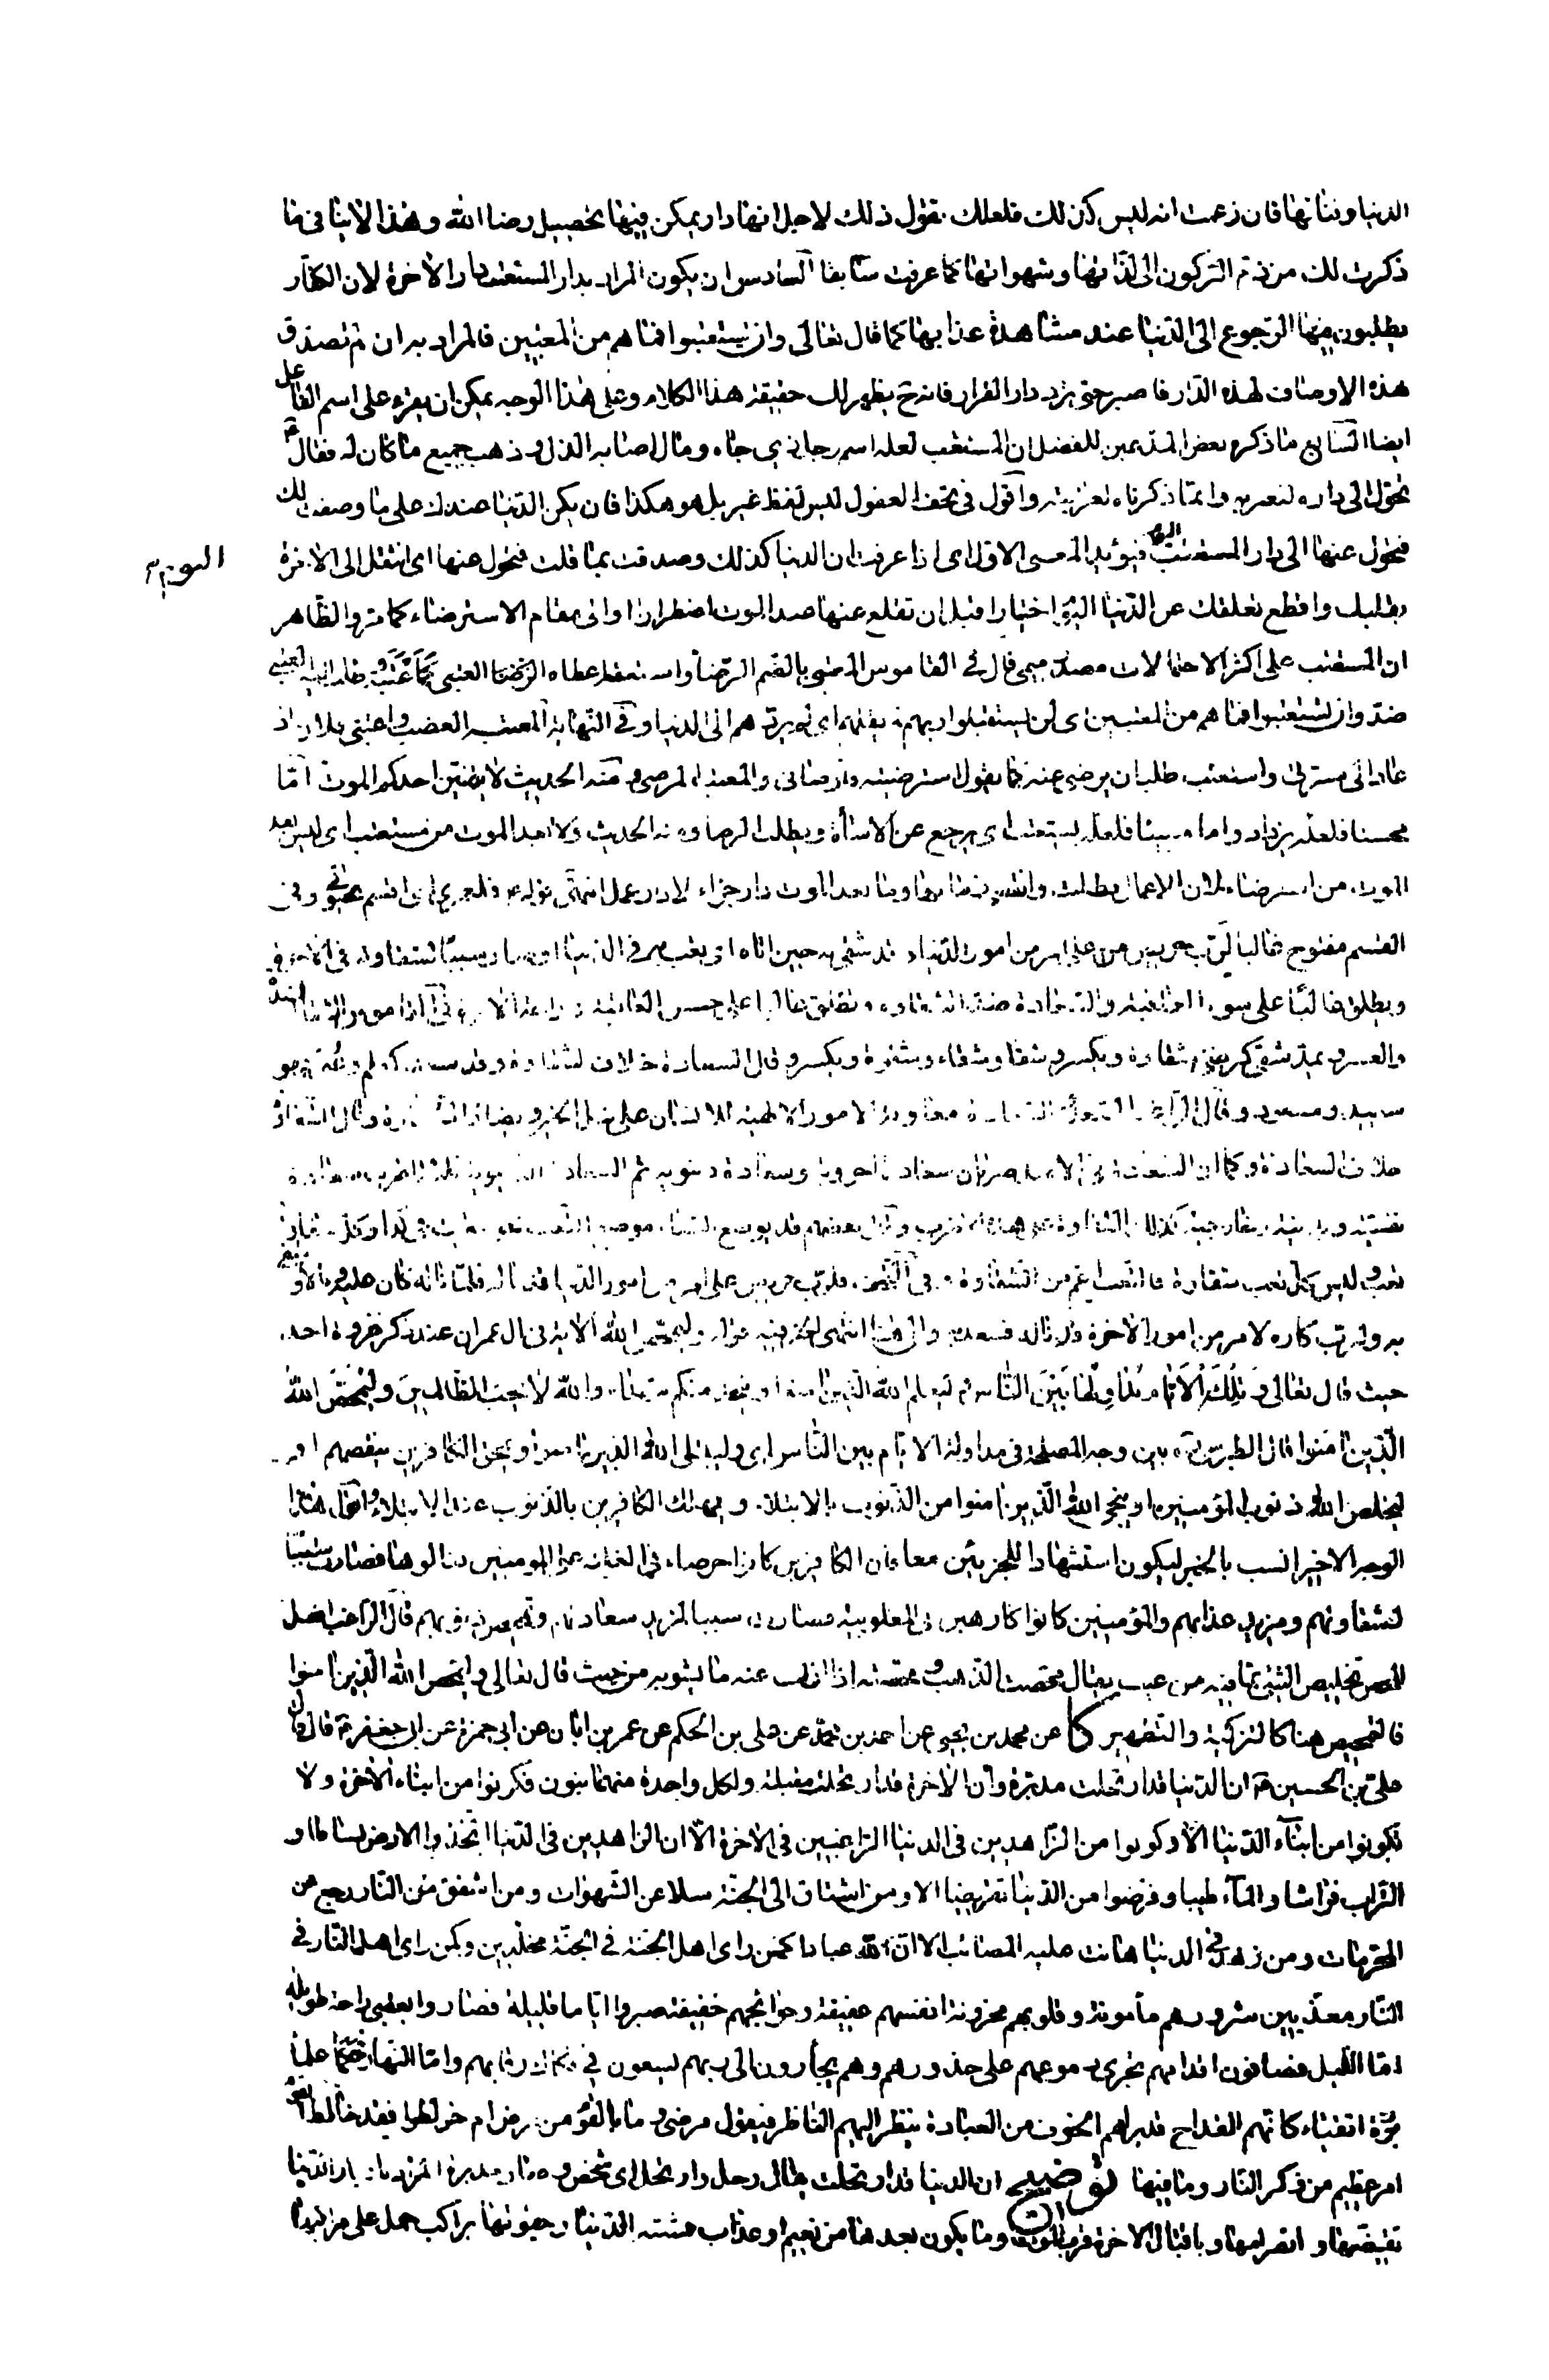 الدنيا وفنائها فان زعمت انه ليس كذلك فلعلك تقول ذلك لاجل انها دار يمكن فيها تحصيل رضا الله وهذا لا ينافي ما
ذكرت لك من ذم الركون الى لذاتها وشهواتها كما عرفت سابقا السادس ان يكون المراد بدار المستعتب دار الاخرة لان الكفار
يطلبون فيها الرجوع الى الدنيا عند مشاهدة عذابها كما قال تعالى وان يستعتبوا فما هم من المعتبين فالمراد به ان لم تصدق
هذه الاوصاف لهذه الدار فاصبر حتى ترد دار القرار فانه ح يظهر لك حقيقة هذا الكلام وعلى هذا الوجه يمكن ان يقرء على اسم الفاعل
ايضا السابع ما ذكره بعض المدعين للفضل ان المستعتب لعله اسم رجل ذي جاه ومال اصابه الذل وذهب جميع ما كان له فقال ع
تحول الى داره لتعبر به وانما ذكرناه لغرابته واقول في تحف العقول ليس لفظ غير بل هو هكذا فان يكن الدنيا عندك على ما وصفت لك
فتحول عنها الى دار المستعتب اليوم فيؤيد المعنى الاول اى اذا عرفت ان الدنيا كذلك وصدقت بما قلت فتحول عنها اى انتقل الى الاخرة
بقلبك واقطع تعلقك عن الدنيا اليوم اختيارا قبل ان تقلع عنها عند الموت اضطرارا وائت مقام الاسترضاء كما مر والظاهر
ان المستعتب على اكثر الاحتمالات مصدر ميمي قال في القاموس العتبى بالضم الرضا واستعتبه اعطاه العتبى كاعتبه وطلب اليه العتبى
ضد وان يستعتبوا فما هم من المعتبين اى ان يستقيلوا ربهم لم يقلهم اى لم يردهم الى الدنيا وفي النهاية المعتب الغضب واعتبني فلان اذ
عاد الى مسرتي واستعتب طلب ان يرضى عنه كما يقول استرضيته فارضاني والمعتب المرضى ومنه الحديث لا يتمنين احدكم الموت اما
محسنا فلعله يزداد واما مسيئا فلعله يستعتب اى يرجع عن الاساءة ويطلب الرضا ومنه الحديث ولا بعد الموت من مستعتب اى ليس بعد
الموت من استرضاء لان الاعمال بطلت وانقضى زمانها وما بعد الموت دار جزاء لا دار عمل انتهى قوله ع فلعمري اى اقسم بحيوتي وفي
القسم مفتوح غالبا لرب حريص على امر من امور الدنيا قد شقي به حين اتاه اى يعب به في الدنيا او صار سببا لشقاوته في الاخرة
ويطلق غالبا على سوء العاقبة والسعادة ضد الشقاوة وتطلق غالبا على حسن العاقبة
والعسر ويمد شقي كرضي شقاوة ويكسر وشقا وشقاء وشقوة ويكسر وقال السعادة خلاف الشقاوة وقد سعد كعلم وعني فهو
سعيد ومسعود وقال الراغب السعد والسعادة معاونة الامور الالهية للانسان على نيل الخير ويضاده الشقاوة وقال الشقاوة
خلاف السعادة وكما ان السعادة في الاصل ضربان سعادة اخروية وسعادة دنيوية ثم السعادة الدنيوية ثلثة اضرب سعادة
نفسية وبدنية وخارجية كذلك الشقاوة على هذه الاضرب وقال بعضهم قد يوضع الشقاء موضع التعب نحو شقيت في كذا وكل شقاوة
تعب وليس كل تعب شقاوة فالتعب اعم من الشقاوة وفي التحف فلرب حريص على امر من امور الدنيا قد ناله فلما ناله كان عليه وبالا و
به ولرب كاره لامر من امور الاخرة قد ناله فسعد به والى هذا انتهى الخبر فيه قوله وليمحص الله الاية في ال عمران عند ذكر غزوة احد
حيث قال تعالى وتلك الايام نداولها بين الناس وليعلم الله الذين امنوا ويتخذ منكم شهداء والله لا يحب الظالمين وليمحص الله
الذين امنوا قال الطبرسي ره بين وجه المصلحة في مداولة الايام بين الناس اى وليبتلى الله الذين امنوا ويمحق الكافرين ينقصهم او
ليخلص الله ذنوب المؤمنين او ينجى الله الذين امنوا من الذنوب بالابتلاء ويهلك الكافرين بالذنوب عند الابتلاء واقول هذا
الوجه الاخير انسب بالخبر ليكون استشهادا للجزئين معا فان الكافرين كانوا حرصاء في الغلبة على المومنين فنالوها فصارت سببا
لشقاوتهم ومزيد عذابهم والمؤمنين كانوا كارهين للمغلوبية فصارت سببا لمزيد سعادتهم وتمحيص ذنوبهم قال الراغب اصل
المحص تخليص الشئ مما فيه من عيب يقال محصت الذهب ومحصته اذا ازلت عنه ما يشوبه من خبث قال تعالى وليمحص الله الذين امنوا
فالتمحيص هنا كالتزكية والتطهير كا عن محمد بن يحيى عن احمد بن محمد عن علي بن الحكم عن عمر بن ابان عن ابي حمزة عن ابي جعفر ع قال قال
علي بن الحسين ع ان الدنيا قد ارتحلت مدبرة وان الاخرة قد ارتحلت مقبلة ولكل واحدة منهما بنون فكونوا من ابناء الاخرة ولا
تكونوا من ابناء الدنيا الا وكونوا من الزاهدين في الدنيا الراغبين في الاخرة الا ان الزاهدين في الدنيا اتخذوا الارض بساطا و
التراب فراشا والماء طيبا وقرضوا من الدنيا تقريضا الا ومن اشتاق الى الجنة سلا عن الشهوات ومن اشفق من النار رجع عن
المحرمات ومن زهد في الدنيا هانت عليه المصائب الا ان لله عبادا كمن راى اهل الجنة في الجنة مخلدين وكمن راى اهل النار في
النار معذبين شرورهم مأمونة وقلوبهم محزونة انفسهم عفيفة وحوائجهم خفيفة صبروا اياما قليلة فصاروا بعقبى راحة طويلة
اما الليل فصافون اقدامهم تجرى دموعهم على خدودهم وهم يجأرون الى ربهم يسعون في فكاك رقابهم واما النهار فحكماء علماء
بررة اتقياء كانهم القداح قد براهم الخوف من العبادة ينظر اليهم الناظر فيقول مرضى وما بالقوم من مرض ام خولطوا فقد خالط القوم
امر عظيم من ذكر النار وما فيها توضيح ان الدنيا قد ارتحلت يقال رحل وارتحل اى شخص وسار مدبرة المراد بادبار الدنيا
تقضيها وانصرامها وباقبال الاخرة قرب الموت وما يكون بعدها من نعيم او عذاب فشبه الدنيا وحيوتها براكب حمل على مراكبها